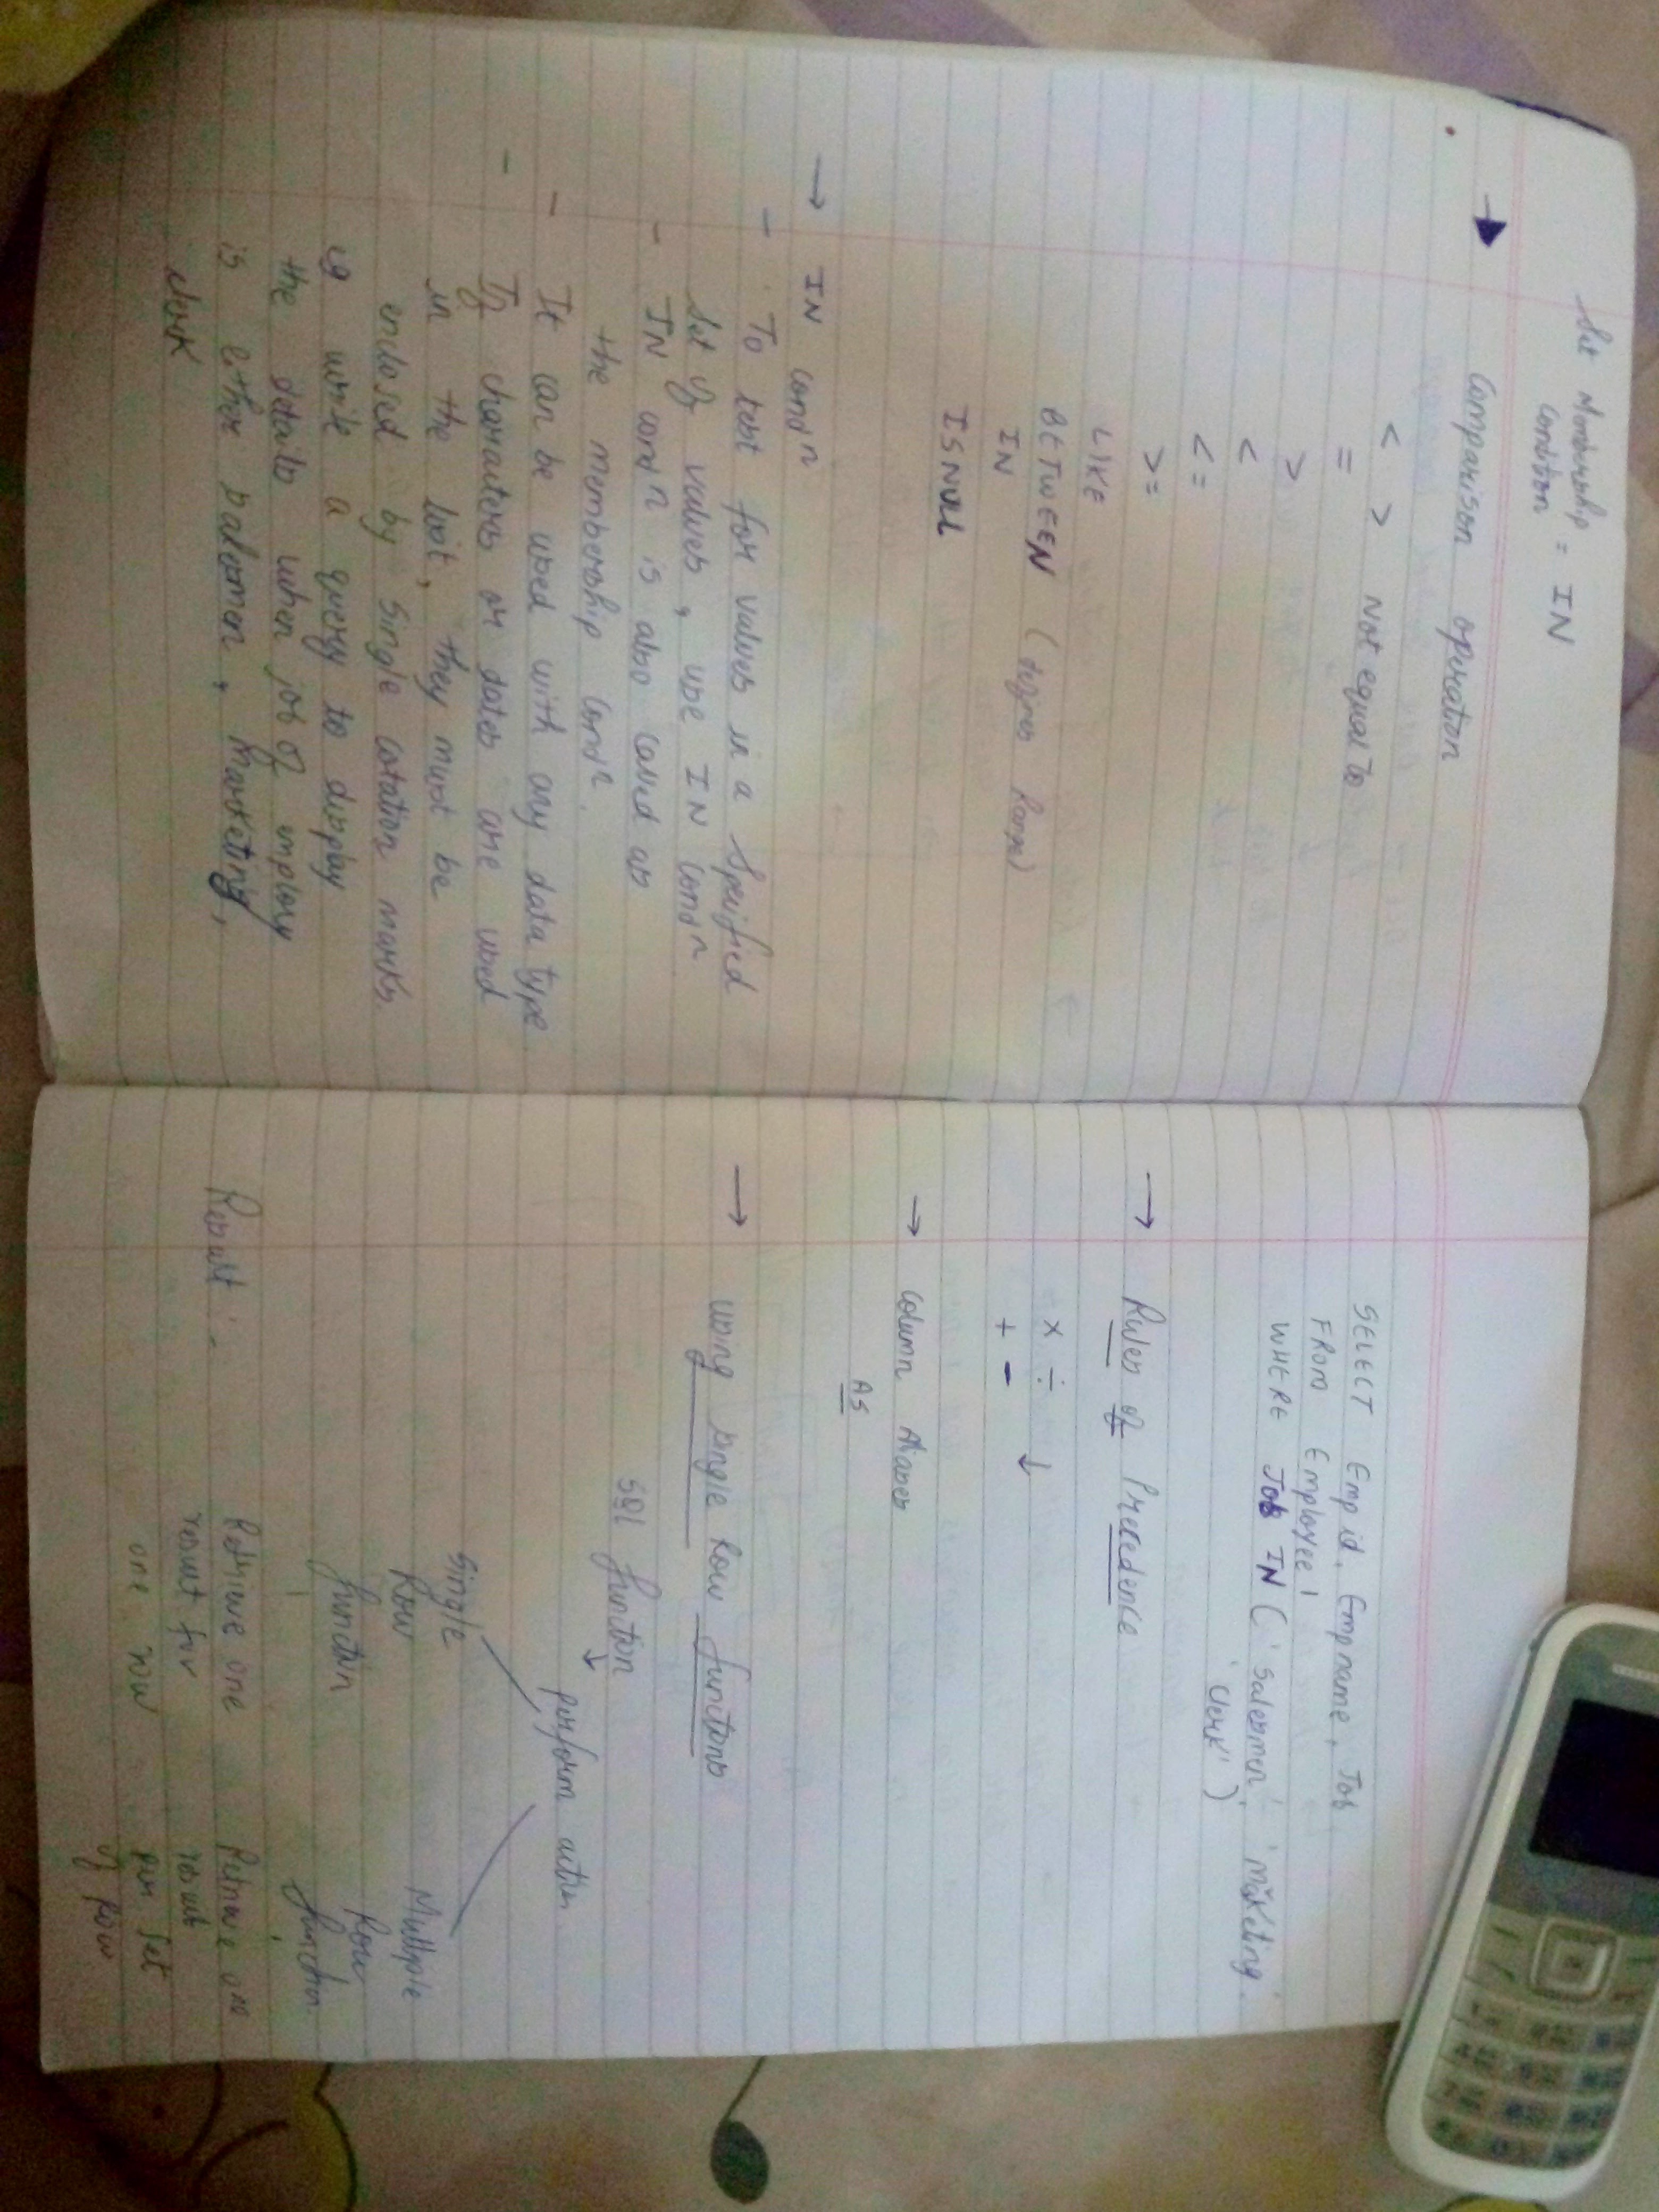 Set Membership = IN
Condition
→ Comparison operation
< > Not equal to
=
>
<
<=
>=
LIKE
BETWEEN (defines Range)
IN
ISNULL
→ IN condⁿ
- To test for values in a specified
set of values, use IN condⁿ
- IN condⁿ is also called as
the membership condⁿ.
- It can be used with any data type
- If charaters or dates are used
in the list, they must be
enclosed by single cotation marks.
eg write a query to display
the details when job of imploy
is either salesmen, marketing,
clerk
SELECT Emp id, Emp name, Job
FROM Employee 1
WHERE Job IN ('salesmen', 'marketing'
'clerk')
→ Rules of Precedence
× ÷
+ - ↓
→ Column Aliases
AS
→ Using single Row functions
SQL function
↓
perform action
Single Multiple
Row Row
function function
Result :- Retrieve one Retrive one
result for result
one row per set
of row